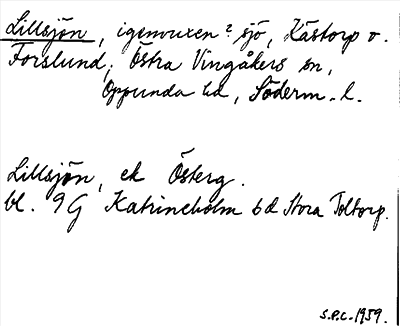 Lillsjön, igenvuxen? sjö, Kästorp o.
Forslund, Östra Vingåkers sn,
Oppunda hd, Söderm. l.
Lillsjön, ek Österg.
bl. 9G Katrineholm bd Stora Toltorp.
S.P.C. 1959.